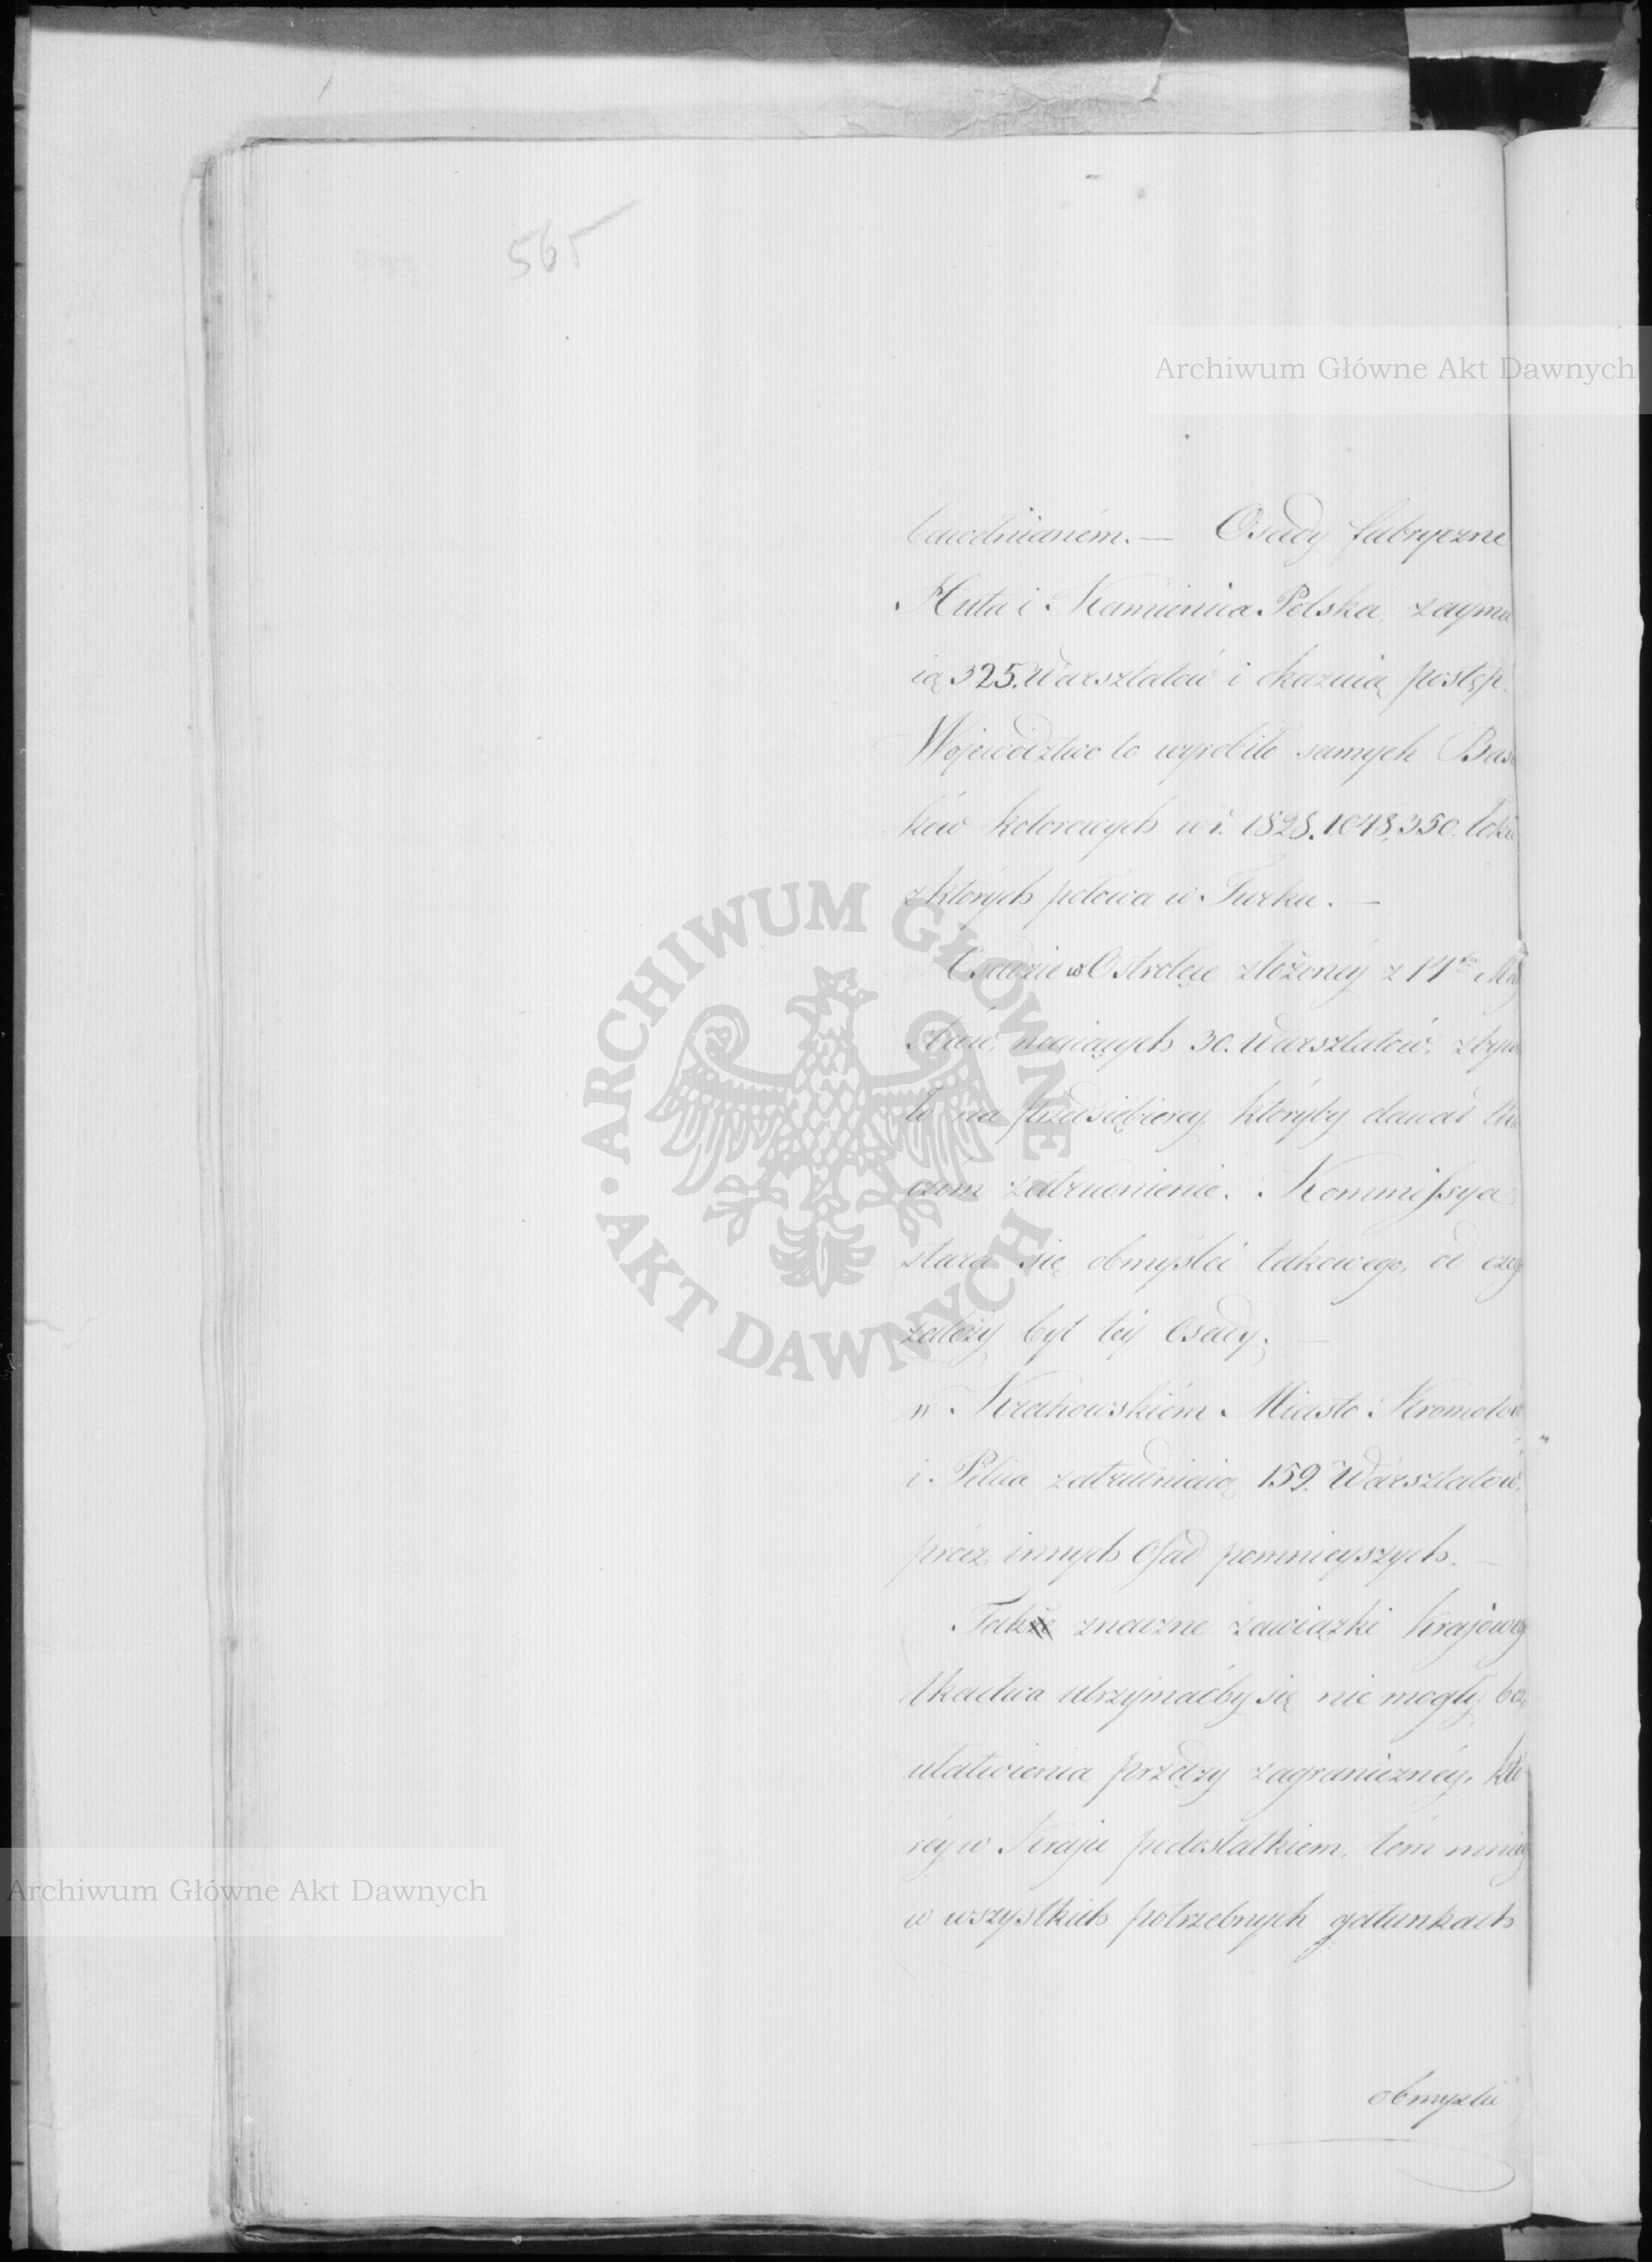 565
Archiwum Główne Akt Dawnych
bawełnianém. — Osady fabryczne
Huta i Kamienica Polska, zaymu
ią 325. Warsztatów i okazuią postęp.
Województwo to wyrobiło samych Bas
ków kolorowych w r. 1828. 1,048,350. łokc
z których połowa w Turku. —
Osadzie w Ostrołęce złożonéy z 14tu May
strów, maiących 30. Warsztatów, zbywa
ło na przedsiębiercy, któryby dawał tka
czom zatrudnienie. Kommissya
stara się obmyślić takowego, od czeg
zależy byt téy Osady. —
w Krakowskiém Miasto Kromołów
i Pilica zatrudniaią 159. Warsztatów,
prócz innych Osad pomnieyszych. —
Tak znaczne zawiązki krajoweg
tkactwa utrzymaćby się nie mogły bez
ułatwienia przędzy zagranicznéy, któ
réy w Kraju podostatkiem, tém mniéy
w wszystkich potrzebnych gatunkach
obmyślić
ARCHIWUM GŁÓWNE AKT DAWNYCH
Archiwum Główne Akt Dawnych